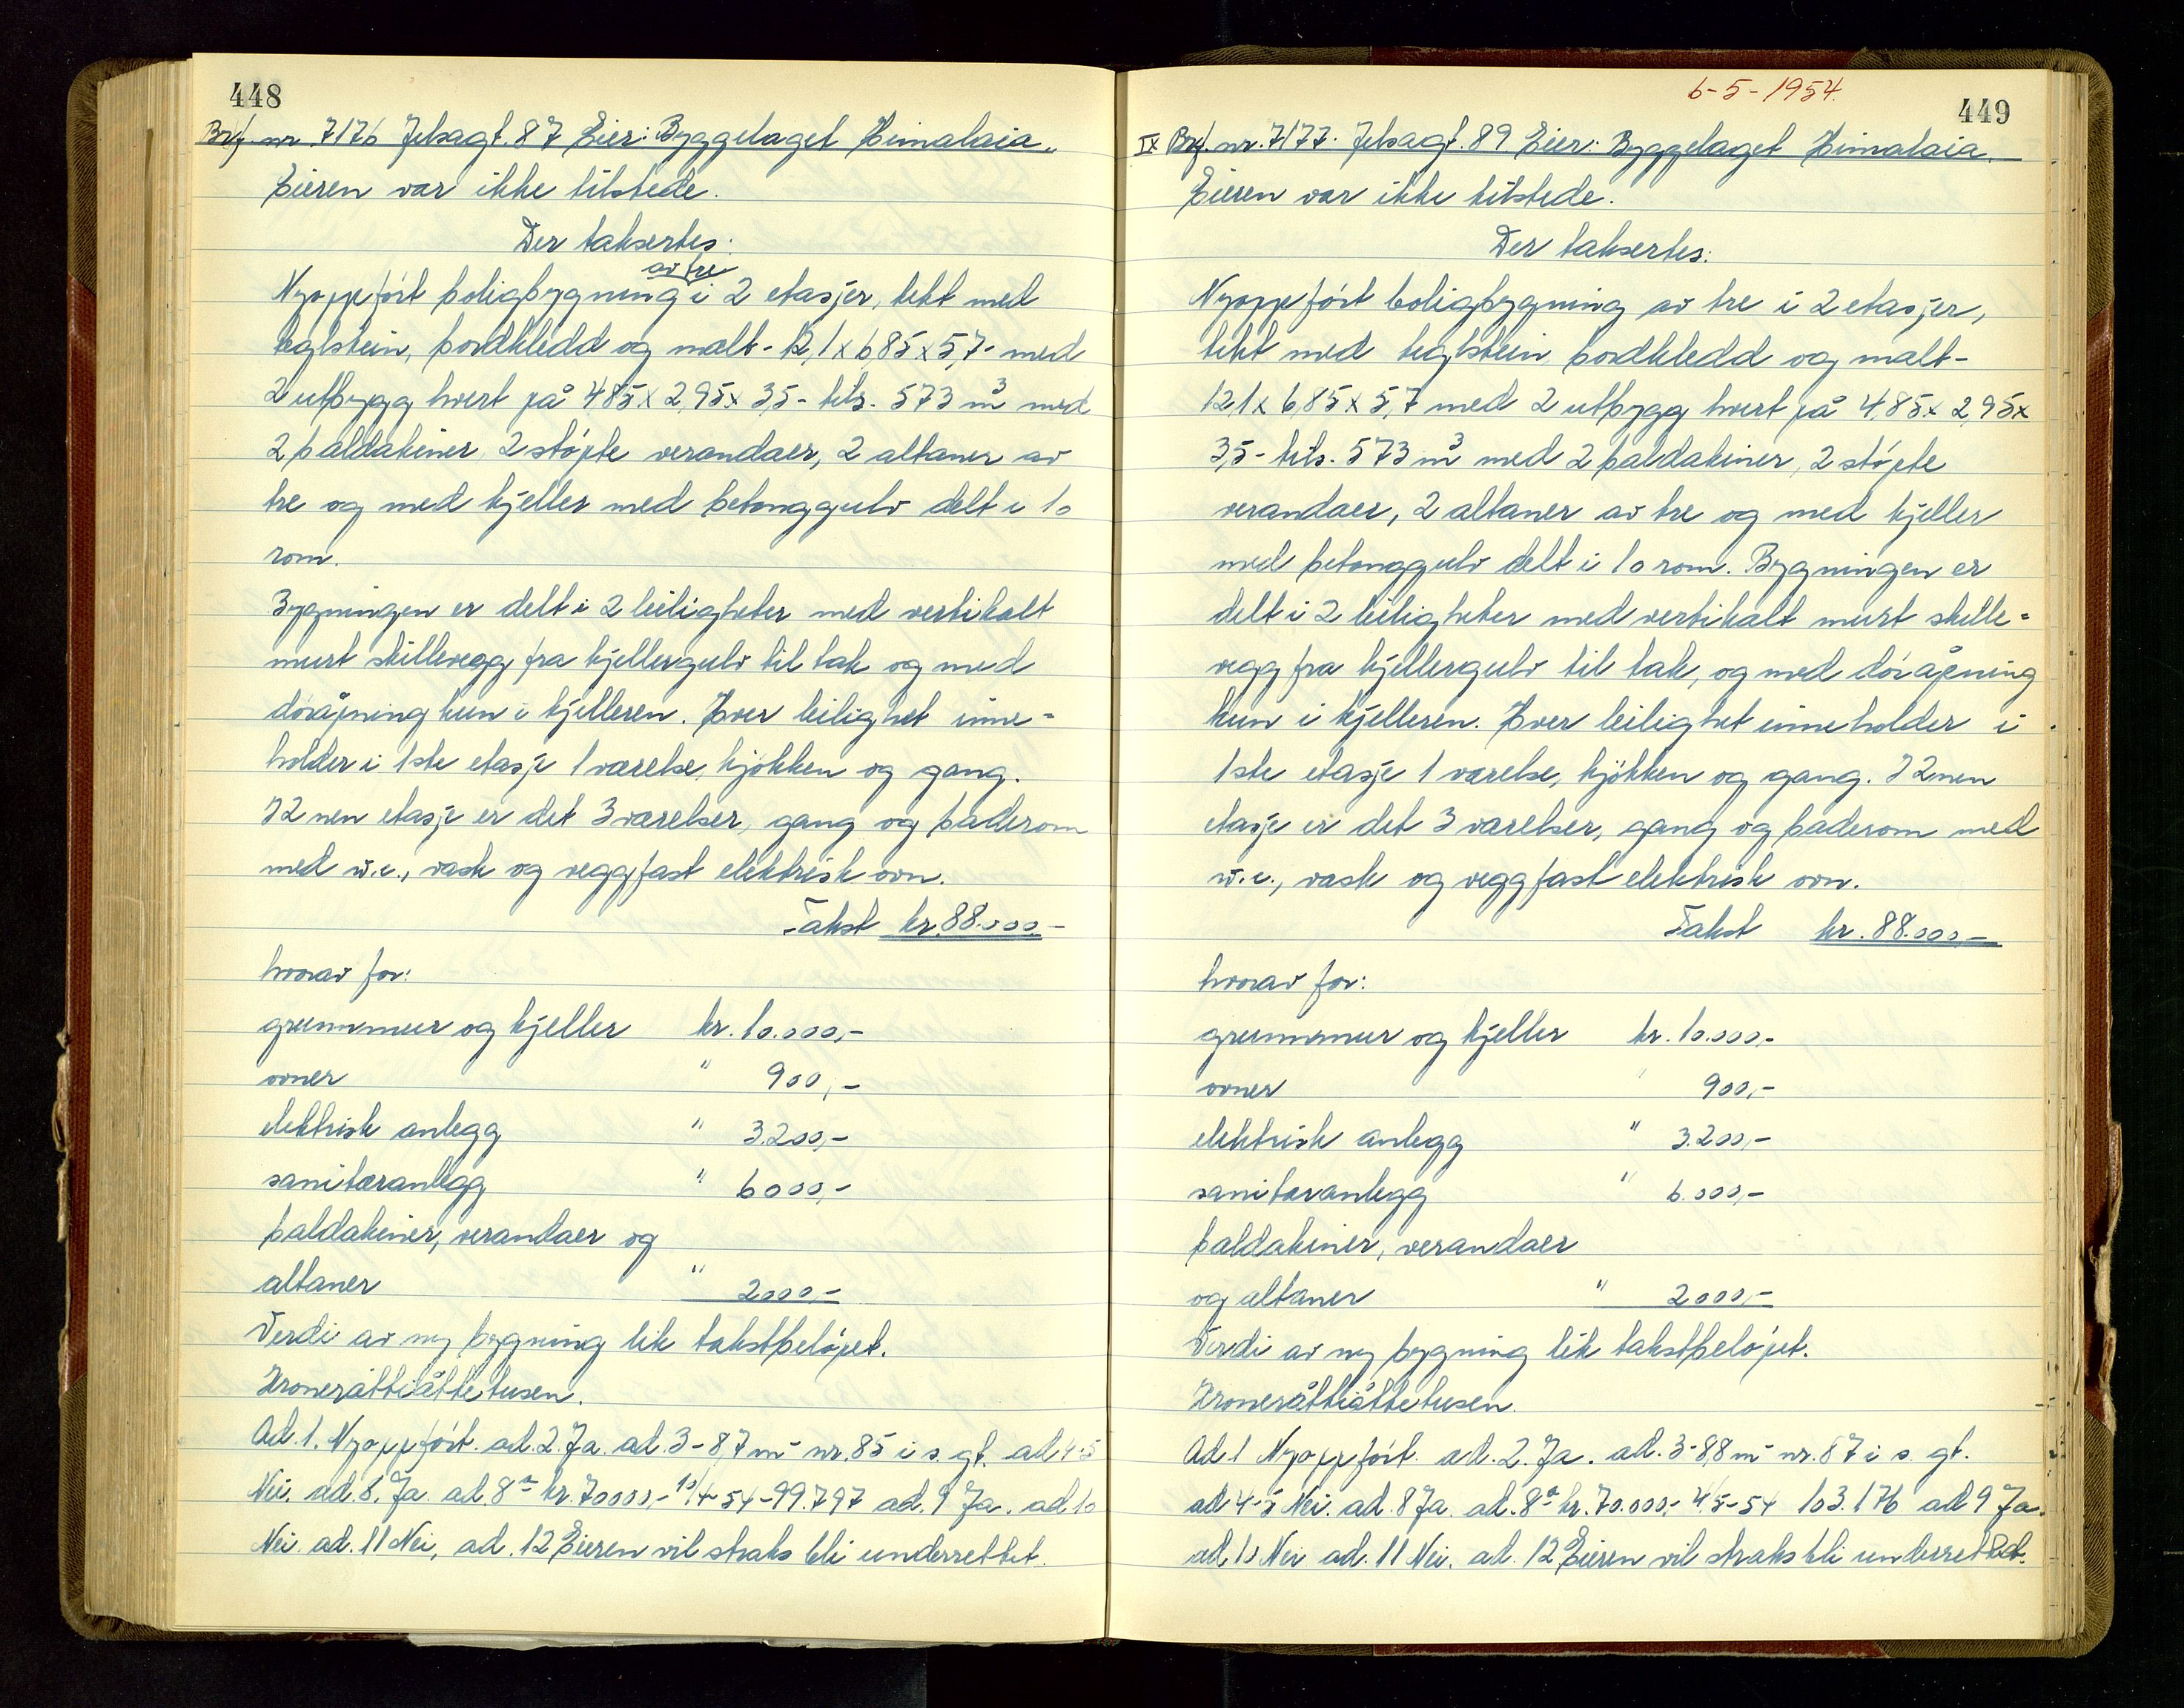 448
Brf. nr. 7176 Jelsagt. 87 Eier: Byggelaget Himalaia.
Eieren var ikke tilstede.
Der taksertes:
av tre
Nyoppført boligbygning i 2 etasjer, tekt med
teglstein, bordkledd og malt - 12,1 x 6,85 x 5,7 - med
2 utbygg hvert på 4,85 x 2,95 x 3,5 - tils. 573 m³ med
2 baldakiner, 2 støpte verandaer, 2 altaner av
tre og med kjeller med betonggulv delt i 10
rom.
Bygningen er delt i 2 leiligheter med vertikalt
murt skillevegg fra kjellergulv til tak og med
døråpning kun i kjelleren. Hver leilighet inne=
holder i 1ste etasje 1 værelse, kjøkken og gang.
I 2nen etasje er det 3 værelser, gang og baderom
med w.c., vask og veggfast elektrisk ovn.
Takst kr. 88.000.-
hvorav for:
grunnmur og kjeller kr. 10.000,-
ovner " 900,-
elektrisk anlegg " 3.200,-
sanitæranlegg " 6000,-
baldakiner, verandaer og
altaner " 2000,-
Verdi av ny bygning lik takstbeløpet.
Kroneråttiåttetusen.
Ad. 1. Nyoppført. ad. 2. Ja. ad. 3 - 8,7 m - nr. 85 i s. gt. ad 4-5
Nei. ad. 8. Ja. ad. 8ª kr. 70000,- 10/4-54-99.797 ad. 9 Ja. ad 10
Nei. ad. 11 Nei, ad. 12 Eieren vil straks bli underrettet.
6-5-1954.
449
IX Brf. nr. 7177. Jelsagt. 89 Eier: Byggelaget Himalaia.
Eieren var ikke tilstede.
Der taksertes:
Nyoppført boligbygning av tre i 2 etasjer,
tekt med teglstein, bordkledd og malt -
12,1 x 6,85 x 5,7 med 2 utbygg hvert på 4,85 x 2,95 x
3,5 - tils. 573 m³ med 2 baldakiner, 2 støpte
verandaer, 2 altaner av tre og med kjeller
med betonggulv delt i 10 rom. Bygningen er
delt i 2 leiligheter med vertikalt murt skille=
vegg fra kjellergulv til tak, og med døråpning
kun i kjelleren. Hver leilighet inneholder i
1ste etasje 1 værelse, kjøkken og gang. I 2nen
etasje er det 3 værelser, gang og baderom med
w.c., vask og veggfast elektrisk ovn.
Takst kr. 88.000,-
hvorav for:
grunnmur og kjeller kr. 10.000.-
ovner " 900,-
elektrisk anlegg " 3.200,-
sanitæranlegg " 6.000,-
baldakiner, verandaer
og altaner " 2000,-
Verdi av ny bygning lik takstbeløpet.
Kroneråttiåttetusen.
Ad. 1 Nyoppført. ad. 2. Ja. ad. 3 - 8,8 m - nr. 87 i s. gt.
ad 4-5 Nei. ad. 8 Ja. ad. 8ª kr. 70.000,- 4/5-54 103.176 ad 9 Ja.
ad. 10 Nei ad. 11 Nei. ad. 12 Eieren vil straks bli underrettet.